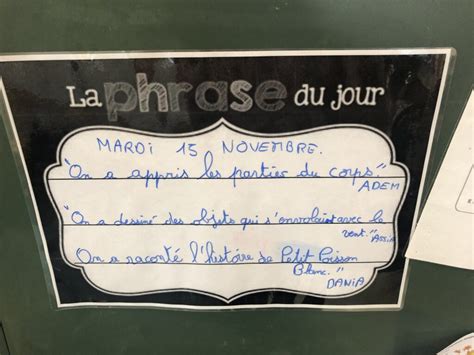 La phrase du jour
MARDI 15 NOVEMBRE.
"On a appris les parties du corps."
ADEM
"On a dessiné des objets qui s'envolaient avec le
vent."
On a raconté l'histoire de Petit Poisson
Blanc."
DANIA